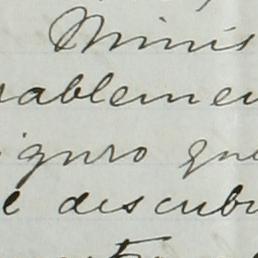 Minis
rablemen
iguro que
l descubi